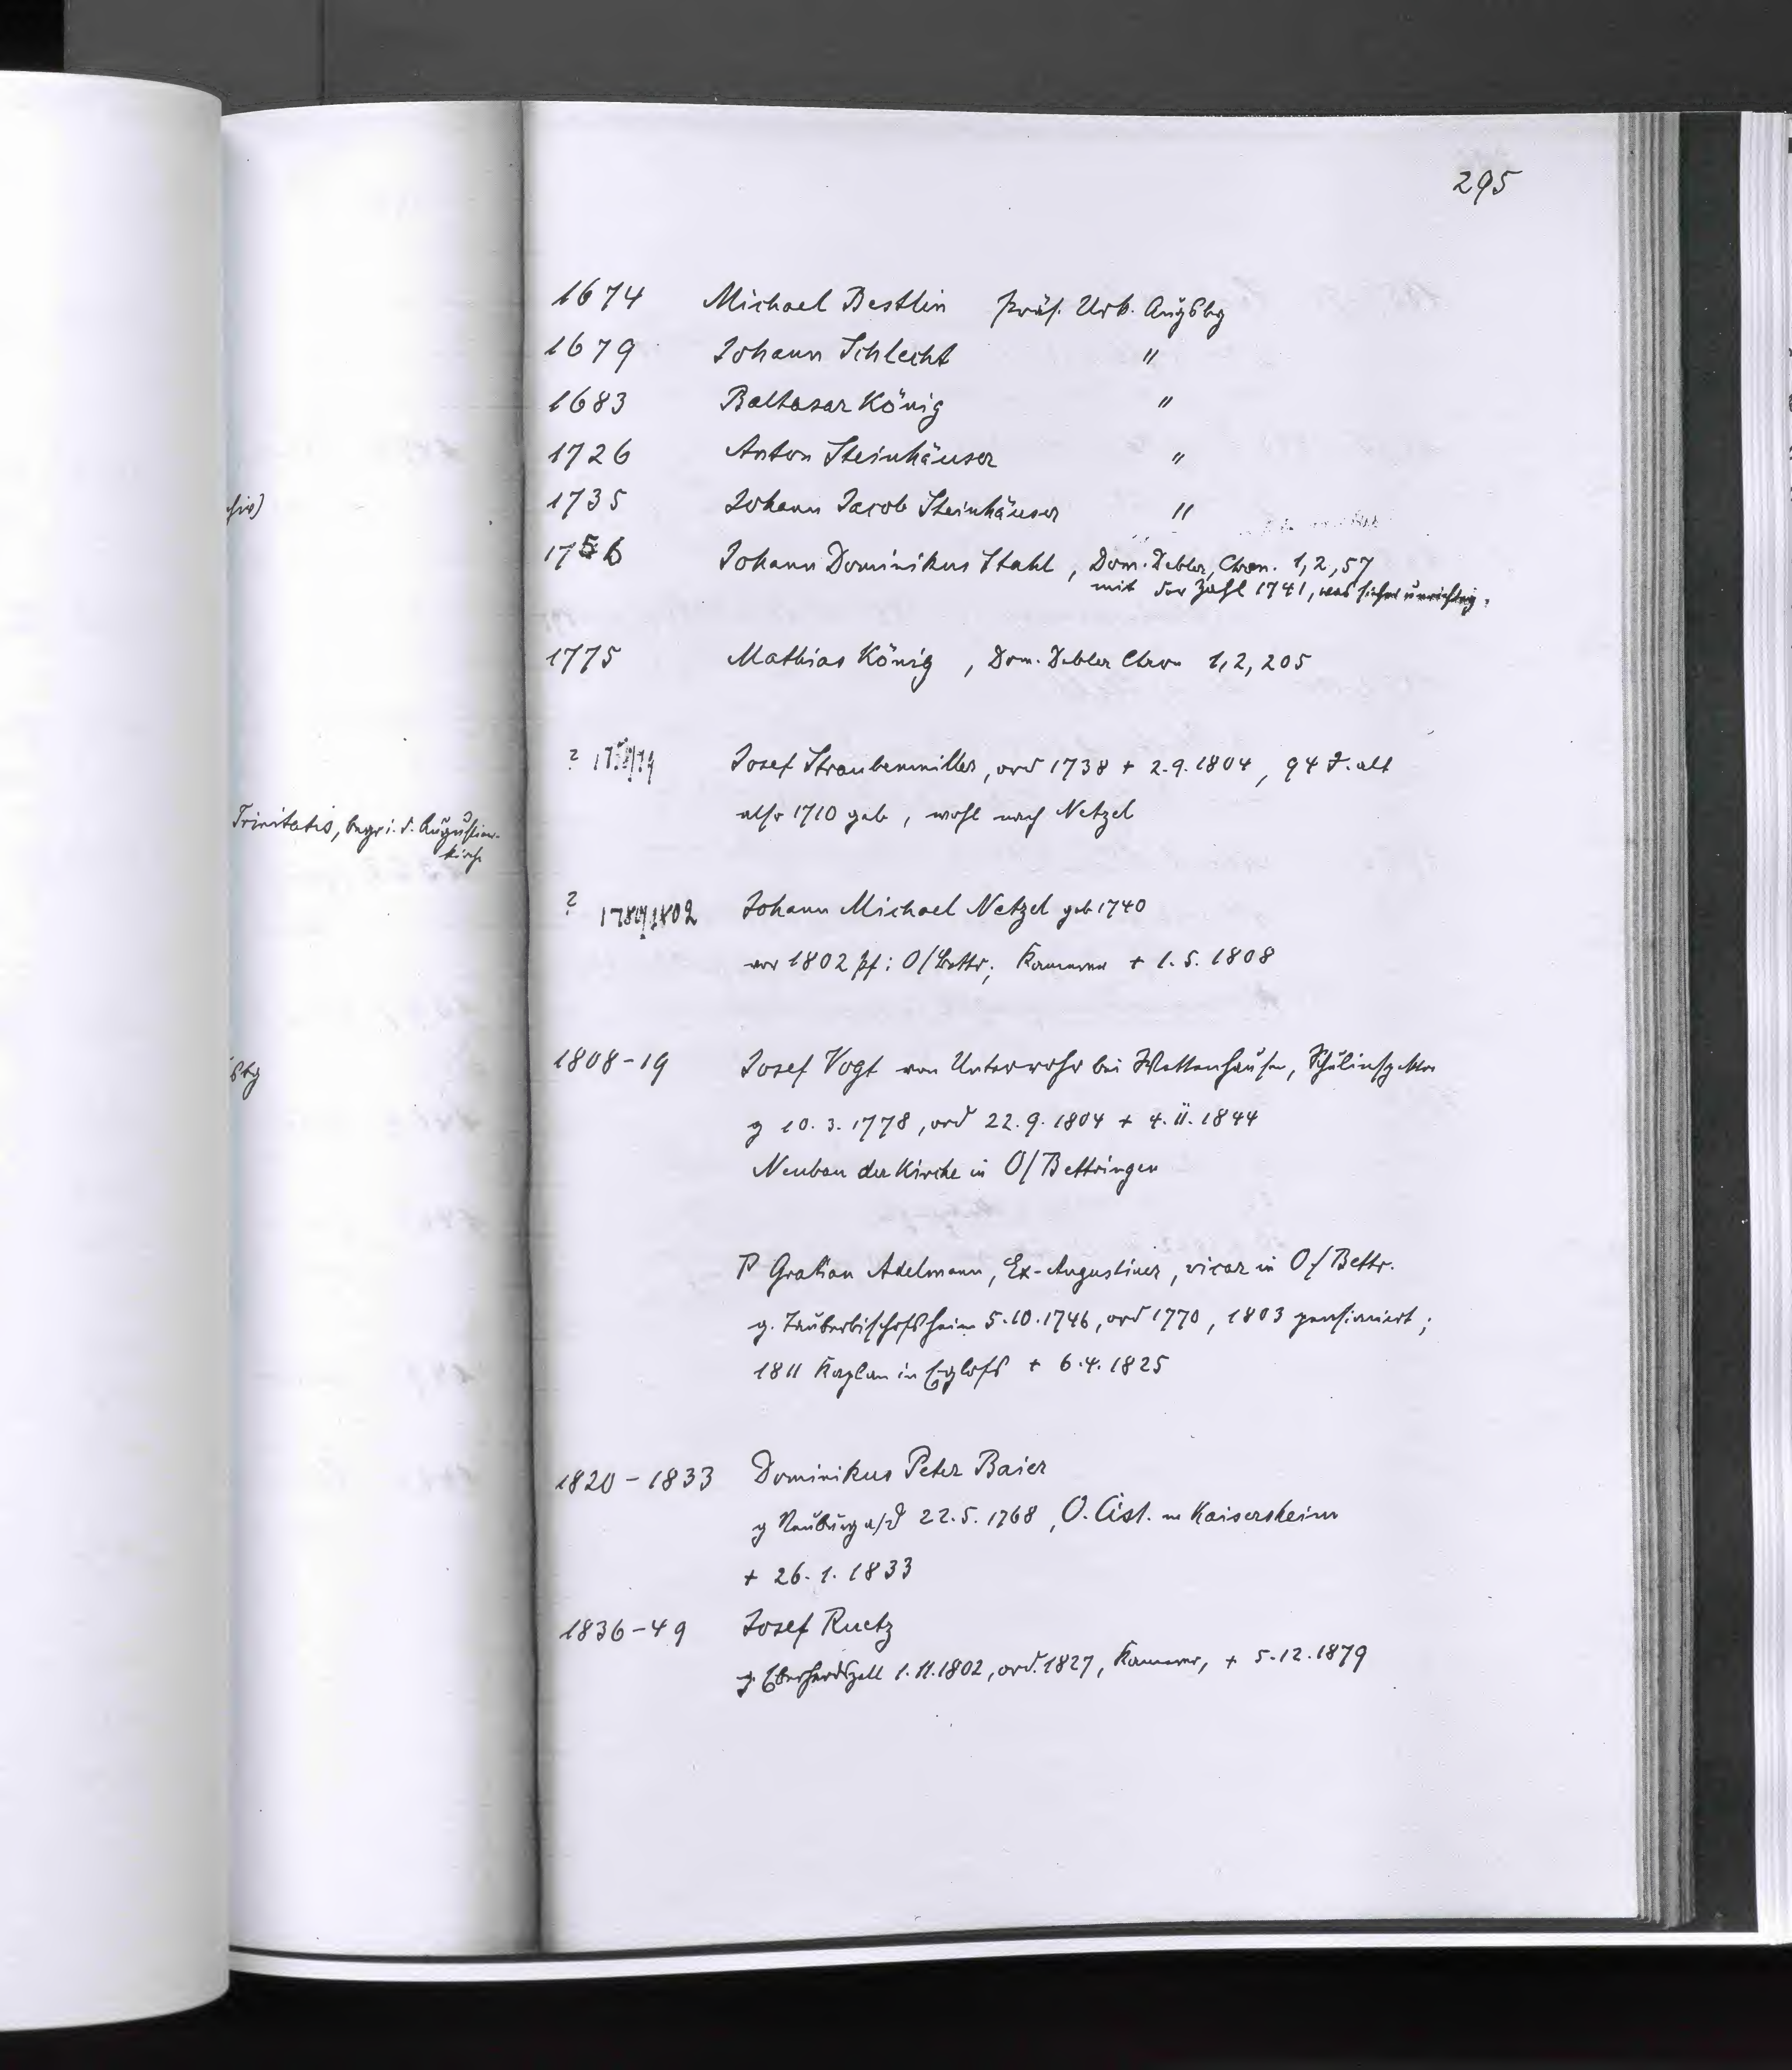 295
1674 Michael Bestlin präs. Urk. Augsbg
1679 Johann Schlecht "
1683 Baltasar König "
1726 Anton Steinhäuser "
1735 Johann Jacob Steinhäuser "
1756 Johann Dominikus Stahl, Dom. Debler, Chron. 1,2,57
mit der Zahl 1741, was sicher unrichtig.
1775 Mathias König, Dom. Debler Chron 1,2,205
? Josef Straubenmiller, ord 1738 + 2.9.1804, 94 J. alt
also 1710 geb, wohl nach Netzel
? 1789/1802 Johann Michael Netzel geb 1740
vor 1802 pf: O/Bettr; Kammerer + 1.5.1808
1808-19 Josef Vogt von Unterrohr bei Wettenhausen, Schulinspektor
g 10.3.1778, ord 22.9.1804 + 4.11.1844
Neubau der Kirche in O/Bettringen
P Gratian Adelmann, Ex-Augustiner, vicar in O/Bettr.
g. Tauberbischofsheim 5.10.1746, ord 1770, 1803 pensioniert;
1811 Kaplan in Eglofs + 6.4.1825
1820-1833 Dominikus Peter Baier
g Neuburg a/d 22.5.1768, O. Cist. in Kaisersheim
+ 26.1.1833
1836-49 Josef Ruetz
g. Eberhardzell 1.11.1802, ord. 1827, Kammerer, + 5.12.1879
Trinitatis, begr. i. d. Augustiner-
kirche
sbg